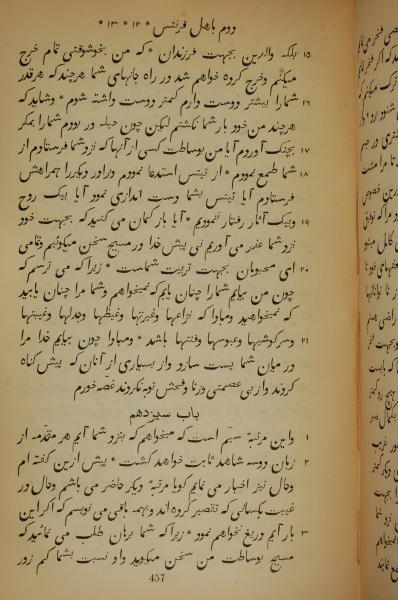 دوم باهل قرنتس * ۱۲ * ۱۳ *
۱۵ بلکه والدین بجهت فرزندان * که من بخوشوقتی تمام خرج
میکنم وخرج کرده خواهم شد در راه جانهای شما هرچند که هرقدر
۱۶ شمارا بیشتر دوست دارم کمتر دوست داشته شوم * وشاید که
هرچند من خود بار شما نکشتم لیکن چون حیله ور بودم شمارا بمکر
۱۷ بچنک آوردم آیا من بوساطت کسی از آنها که نزد شما فرستادم از
۱۸ شما طمع نمودم * از تیتس استدعا نمودم وبرادر دیکررا همراهش
فرستادم آیا تیتس بشما دست اندازی نمود آیا بیک روح
۱۹ وبیک آثار رفتار ننمودیم * آیا باز کمان می کنید که بجهت خود
نزد شما عذر می آوریم نی پیش خدا در مسیح سخن میکوئیم وتمامی
۲۰ ای محبوبان بجهت تربیت شماست * زیرا که می ترسم که
چون من بیایم شمارا چنان یابم که نمیخواهم وشما مرا چنان یابید
که نمیخواهید ومبادا که نزاعها وغیرتها وغیظها وجدلها وغیبتها
۲۱ وسرکوشیها وعبوسها وفتنها باشد * ومبادا چون بیایم خدا مرا
در میان شما پست سازد واز بسیاری از آنان که پیش کناه
کردند واز بی عصمتی وزنا وفحش توبه نکردند غصّه خورم
باب سیزدهم
۱ واین مرتبهٔ سیّم است که میخواهم که بنزد شما آیم هر مقدّمه از
۲ زبان دوسه شاهد ثابت خواهد کشت * پیش ازین کفته ام
وحال نیز اخبار می نمایم کویا مرتبهٔ دیکر حاضر می باشم وحال در
غیبت بکسانی که تقصیر کرده اند وبهمه باقی می نویسم که اکر این
۳ بار آیم دریغ نخواهم نمود * زیرا که شما برهان طلب می نمائید که
مسیح بوساطت من سخن میکوید واو نسبت بشما کم زور
457